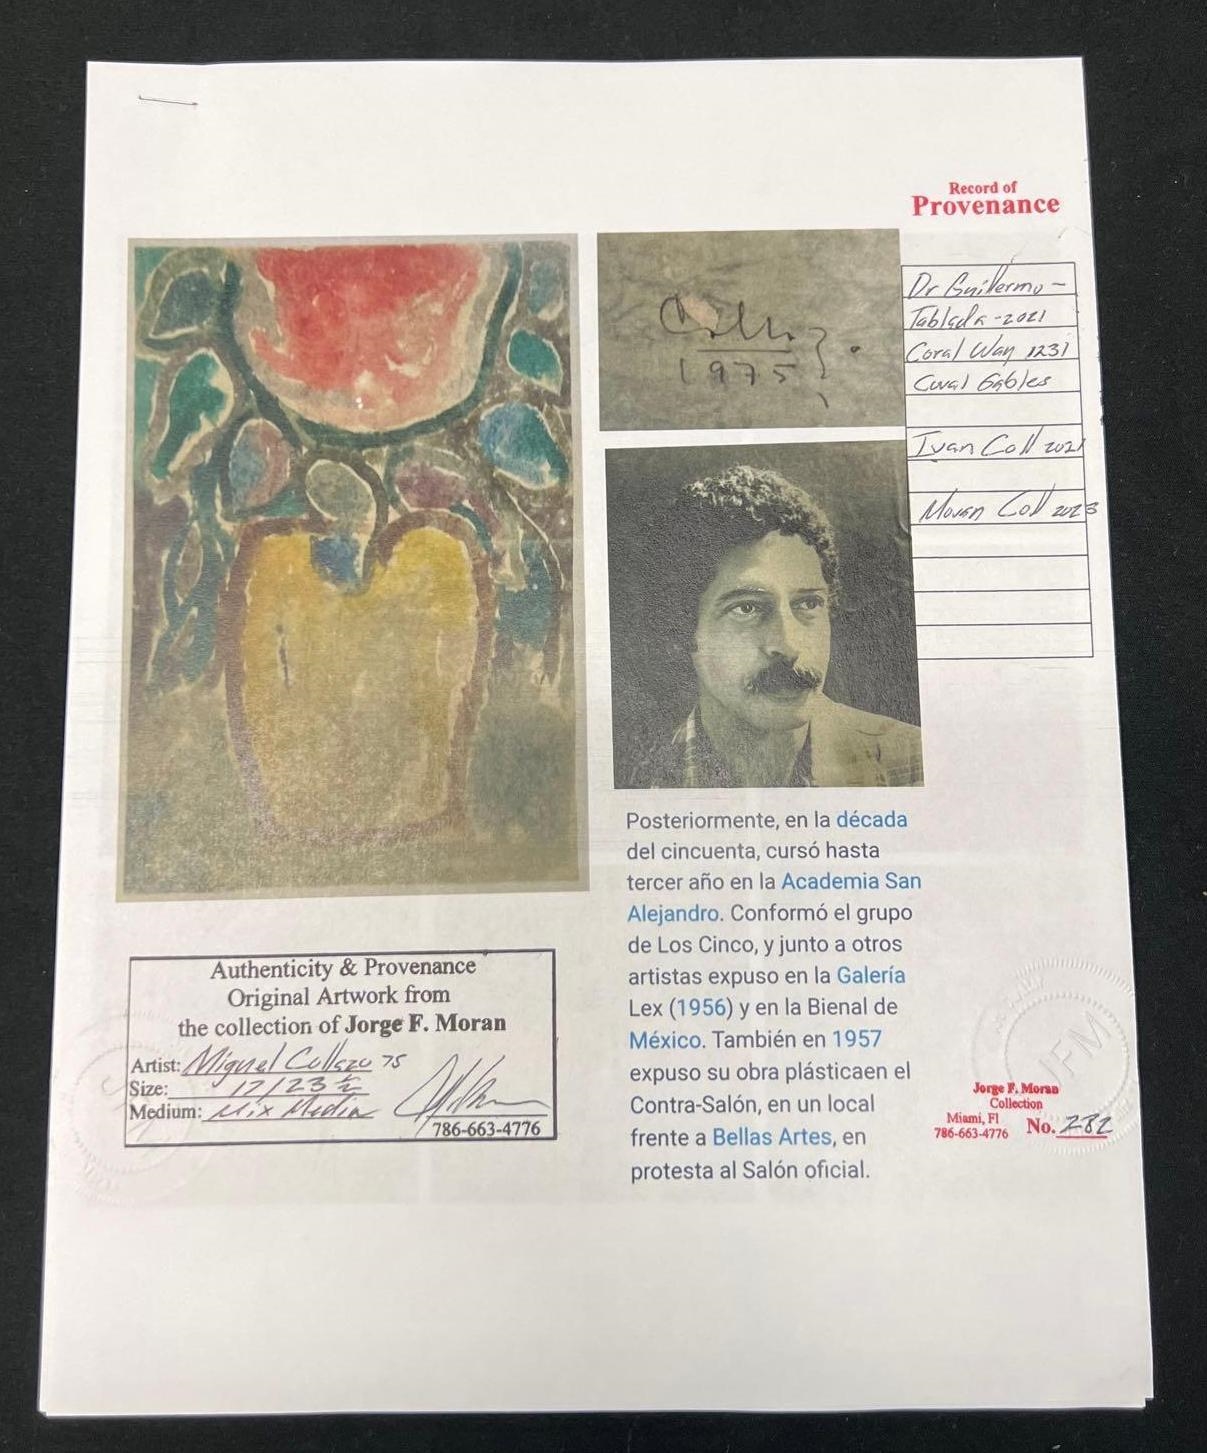 Record of
Provenance
Dr Guillermo -
Tablada - 2021
Coral Way 1231
Coral Gables
Ivan Coll 2021
Moran Coll 2023
1975
Posteriormente, en la década
del cincuenta, cursó hasta
tercer año en la Academia San
Alejandro. Conformó el grupo
de Los Cinco, y junto a otros
artistas expuso en la Galería
Lex (1956) y en la Bienal de
México. También en 1957
expuso su obra plásticaen el
Contra-Salón, en un local
frente a Bellas Artes, en
protesta al Salón oficial.
Authenticity & Provenance
Original Artwork from
the collection of Jorge F. Moran
Artist: Miguel Collazo 75
Size: 17/23 1/2
Medium: Mix Media
786-663-4776
JFM
Jorge F. Moran
Collection
Miami, Fl
786-663-4776
No. 282